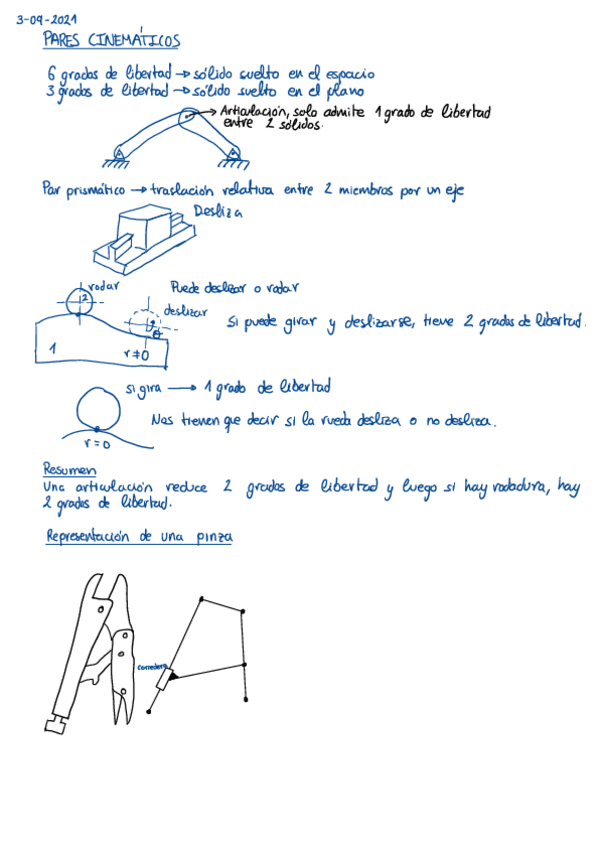 3-09-2021
PARES CINEMÁTICOS
6 grados de libertad → sólido suelto en el espacio
3 grados de libertad → sólido suelto en el plano
Articulación, solo admite 1 grado de libertad
entre 2 sólidos.
Par prismático → traslación relativa entre 2 miembros por un eje
Desliza
rodar
Puede deslizar o rodar
2
deslizar
Si puede girar y deslizarse, tieve 2 grados de libertad.
1
r≠0
si gira → 1 grado de libertad
Nos tienen que decir si la rueda desliza o no desliza.
r=0
Resumen
Una articulación reduce 2 grados de libertad y luego si hay rodadura, hay
2 grados de libertad.
Representación de una pinza
corredera